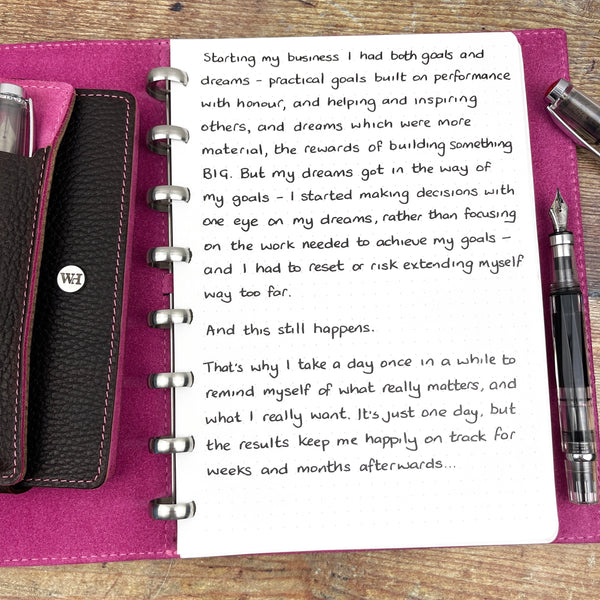 Starting my business I had both goals and
dreams – practical goals built on performance
with honour, and helping and inspiring
others, and dreams which were more
material, the rewards of building something
BIG. But my dreams got in the way of
my goals – I started making decisions with
one eye on my dreams, rather than focusing
on the work needed to achieve my goals –
and I had to reset or risk extending myself
way too far.
And this still happens.
That's why I take a day once in a while to
remind myself of what really matters, and
what I really want. It's just one day, but
the results keep me happily on track for
weeks and months afterwards...
WH